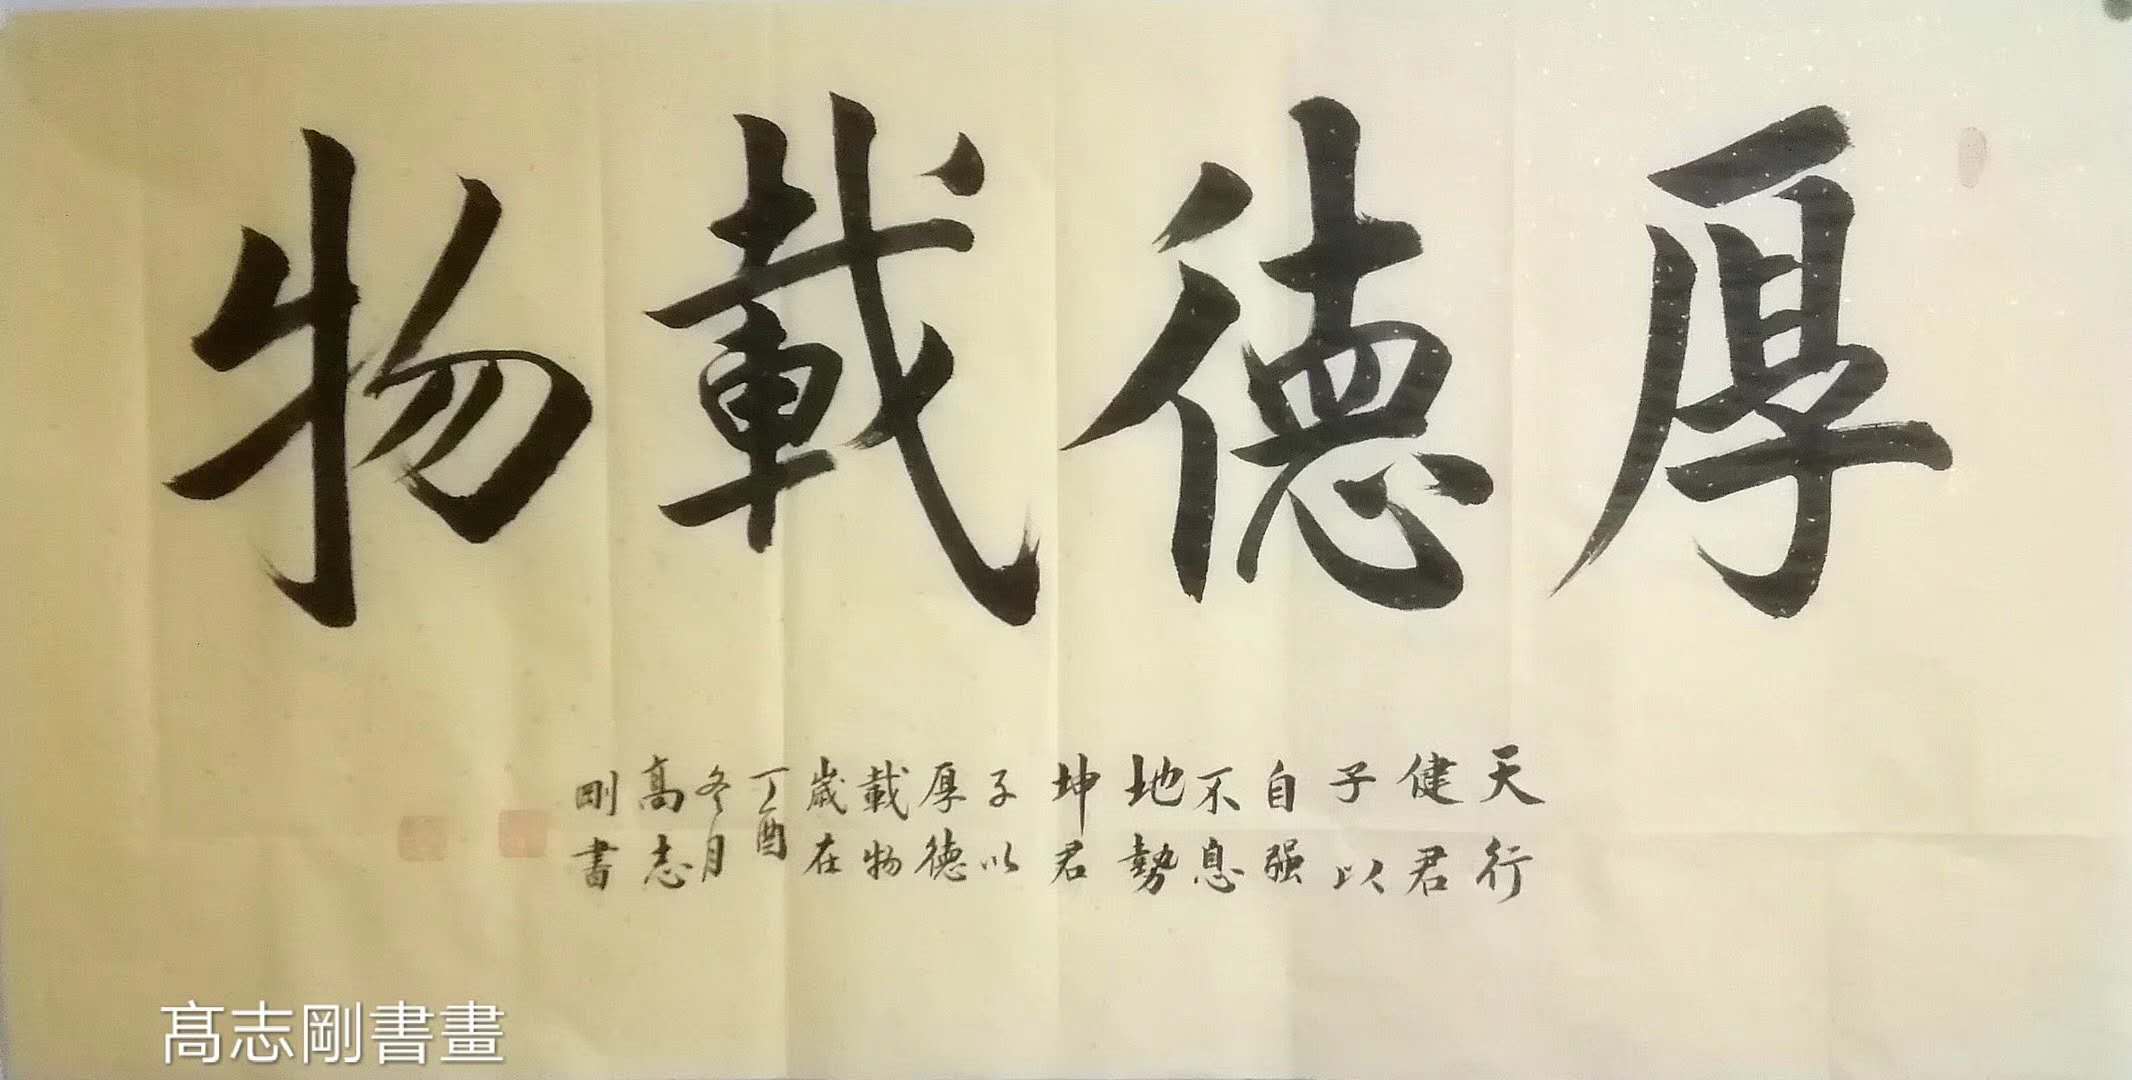 厚德載物
天行
健君
子以
自强
不息
地勢
坤君
子以
厚德
載物
歲在
丁酉
冬月
高志
剛書
髙志剛書畫